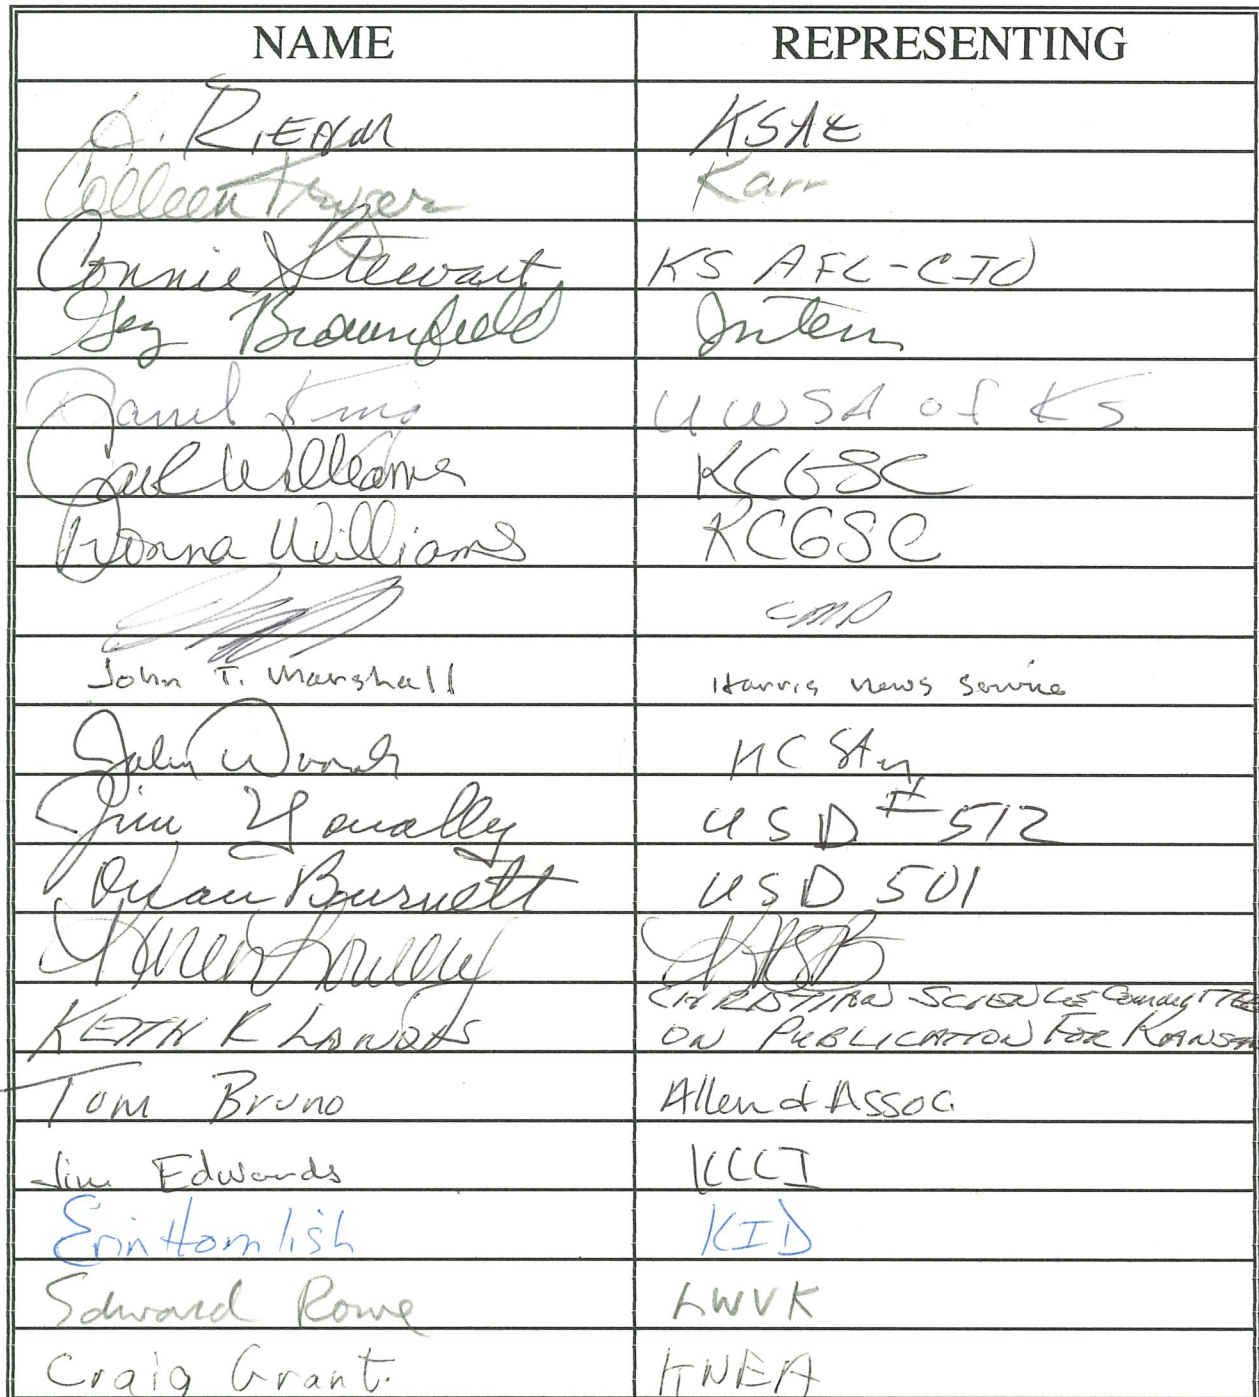 NAME REPRESENTING
KSAE
Colleen Karr
Connie Stewart KS AFL-CIO
Brownfield Intern
King UWSA of KS
Carl Williams KCGSC
Donna Williams KCGSC
John T. Marshall Harris News Service
John KC Star
Jim Yonally USD #512
Burnett USD 501
Karen Lowery KASB
KEITH R LANDIS CHRISTIAN SCIENCE COMMITTEE
ON PUBLICATION FOR KANSAS
Tom Bruno Allen & Assoc.
Jim Edwards KCCI
Erin Homlish KID
Edward Rowe LWVK
Craig Grant. KNEA